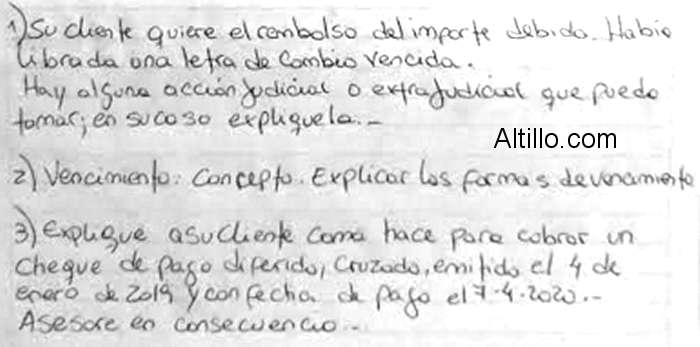 1) Su cliente quiere el rembolso del importe debido. Había
librada una letra de Cambio vencida.
Hay alguna acción Judicial o extraJudicial que pueda
tomar; en su caso expliquela.-
Altillo.com
2) Vencimiento: Concepto. Explicar las formas de vencimiento
3) Explique a su Cliente como hace para cobrar un
Cheque de pago diferido, Cruzado, emitido el 4 de
enero de 2019 y con fecha de pago el 7-4-2020.-
Asesore en consecuencia.-